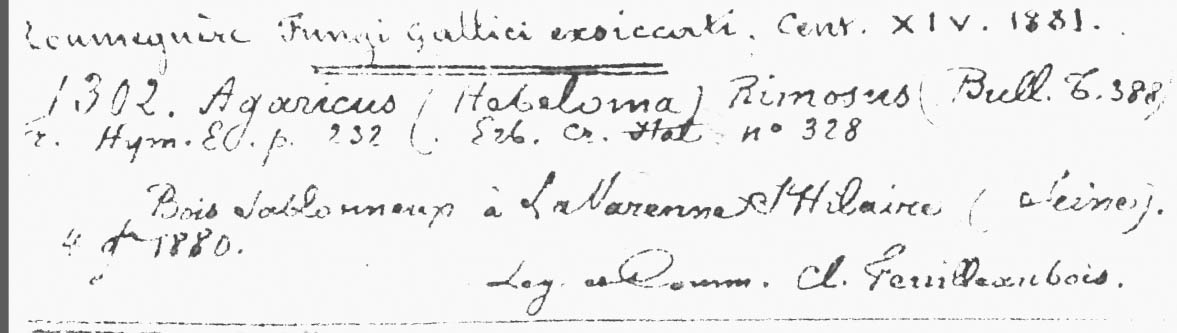 Roumeguère Fungi Gallici exsiccati. Cent. XIV. 1881.
1302. Agaricus (Hebeloma) Rimosus (Bull. t. 388)
Fr. Hym. Eu. p. 232 (. Erb. Cr. Ital. n° 328
Bois sablonneux à La Varenne St Hilaire (Seine).
4 1880.
Leg. et Comm. Cl. Feuilleaubois.